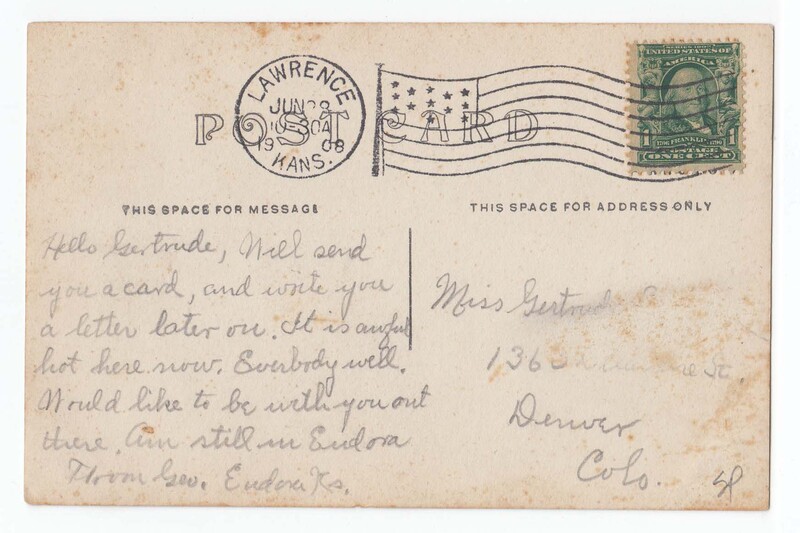 LAWRENCE
JUN 28
1908
KANS.
POST CARD
SERIES 1902
UNITED STATES OF
AMERICA
1 FRANKLIN 1
POSTAGE
ONE CENT
THIS SPACE FOR MESSAGE
Hello Gertrude, Will send
you a card, and write you
a letter later on. It is awful
hot here now. Everbody well.
Would like to be with you out
there. Am still in Eudora
From Geo. Eudora Ks.
THIS SPACE FOR ADDRESS ONLY
Miss Gertrude
St.
Denver
Colo.